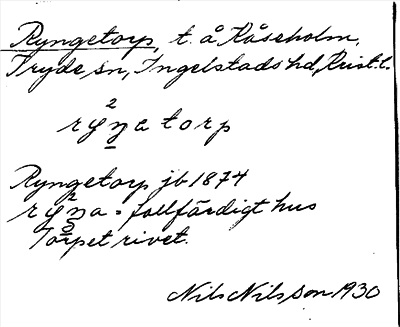 Ryngetorp, t. å Råseholm,
Tryde sn, Ingelstads hd, Krist. l.
2
ryŋatorp
Ryngetorp jb 1874
ryŋa = fallfärdigt hus
Torpet rivet.
Nils Nilsson 1930